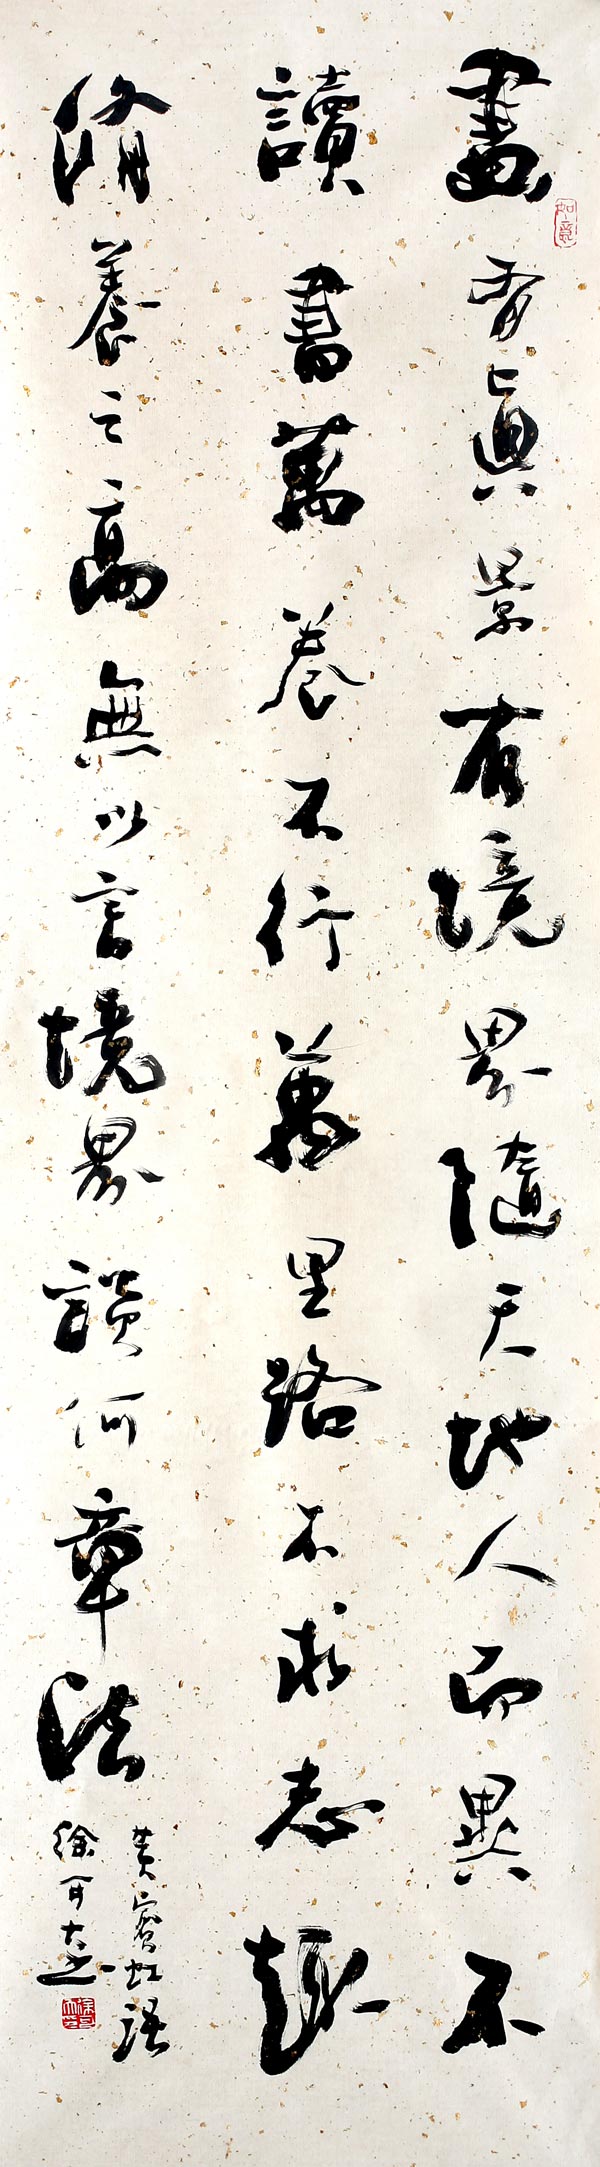 如意
畫有真景有境界隨天地人而異不
讀書萬卷不行萬里路不求志趣
脩養之高無以言境界韻何章法
黃賓虹語
徐